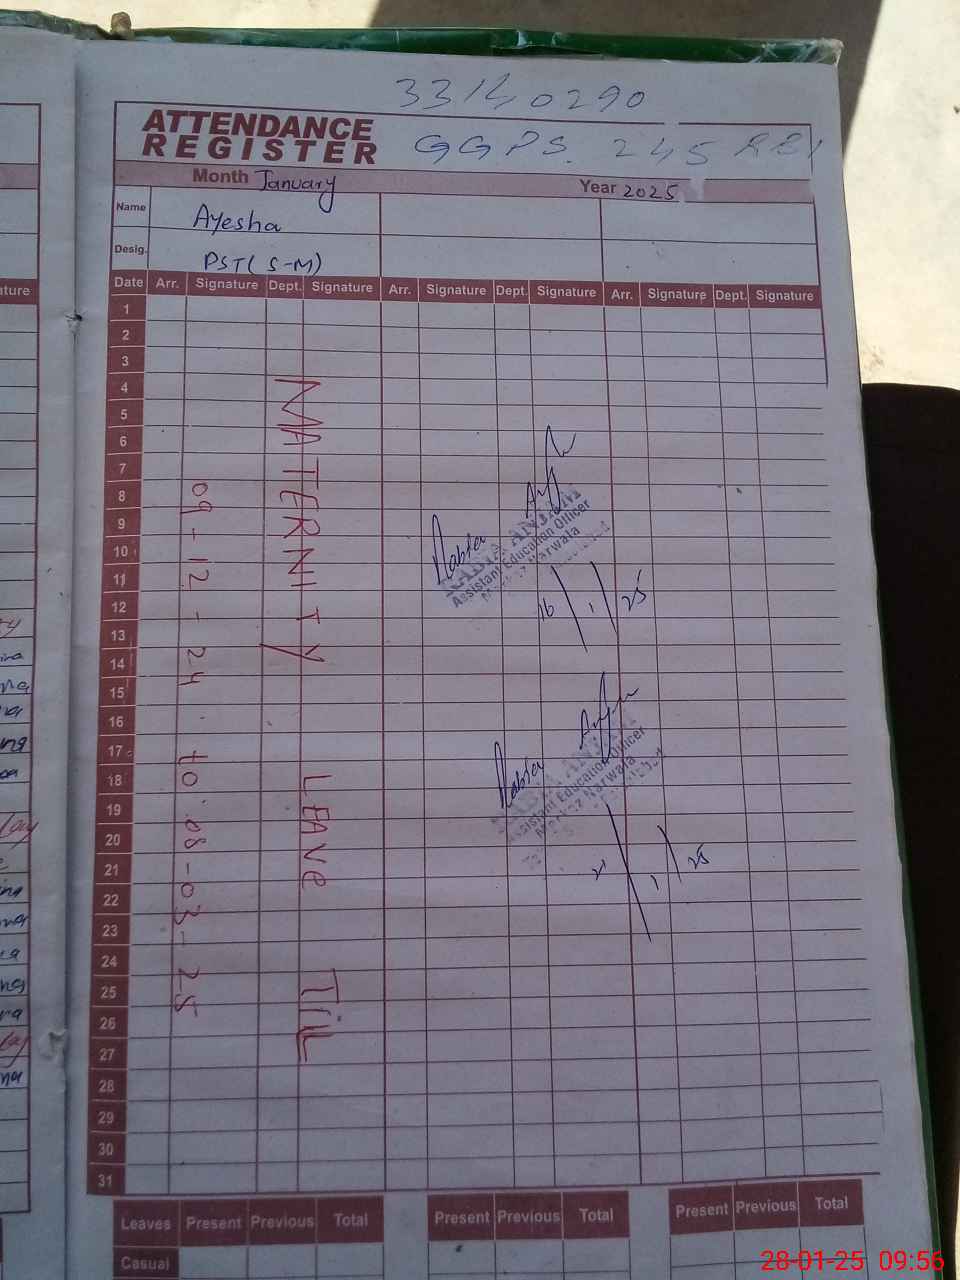 33140290
ATTENDANCE
REGISTER
GGPS. 245 RB
Month January
Year 2025
Name Ayesha
Desig. PST( S-M)
Date Arr. Signature Dept. Signature Arr. Signature Dept. Signature Arr. Signature Dept. Signature
1
2
3
4
5
6
7
8
9
10
11
12
13
14
15
16
17
18
19
20
21
22
23
24
25
26
27
28
29
30
31
MATERNITY LEAVE TilL
09-12-24 to 08-03-25
Rabia Anjum
RABIA ANJUM
Assistant Education Officer
Markaz Narwala
16/1/25
Rabia Anjum
RABIA ANJUM
Assistant Education Officer
Markaz Narwala
21/1/25
Leaves Present Previous Total Present Previous Total Present Previous Total
Casual
28-01-25 09:56